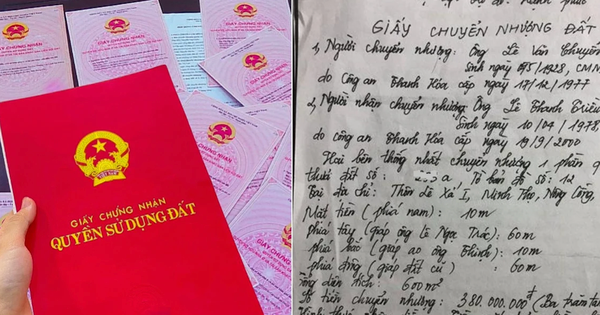 GIẤY CHỨNG NHẬN
GIẤY CHỨNG NHẬN
GIẤY CHỨNG NHẬN
GIẤY CHỨNG NHẬN
CHỨNG NHẬN
VIỆT NAM
GIẤY CHỨNG NHẬN
QUYỀN SỬ DỤNG ĐẤT
GIẤY CHUYỂN NHƯỢNG ĐẤT
1, Người chuyển nhượng: Ông Lê Văn Chuyên
Sinh ngày /5/1928, CMN
do Công an Thanh Hóa cấp ngày 17/12/1977
2, Người nhận chuyển nhượng: Ông Lê Thanh Triều
Sinh ngày 10/04/1978,
do công an Thanh Hóa cấp ngày 19/9/2000
Hai bên thống nhất chuyển nhượng 1 phần q
thửa đất số: a, Tờ bản đồ số: 12
Tại địa chỉ: Thôn Lê Xá I, Minh Thọ, Nông Cống,
Mặt tiền (phía nam): 10m
phía tây (giáp ông Lê Ngọc Trác): 60m
phía bắc (giáp ao ông Thinh): 10m
phía đông (giáp đất cũ): 60m
Tổng diện tích: 600m²
Số tiền chuyển nhượng: 380.000.000đ (Ba trăm tám